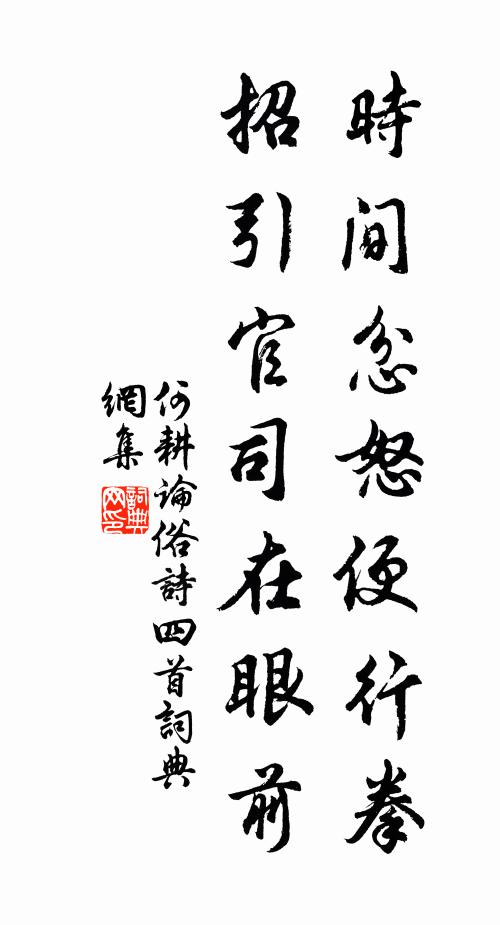 時間忿怒便行拳
招引官司在眼前
何耕論俗詩四首詞典
網集
詞典
网印